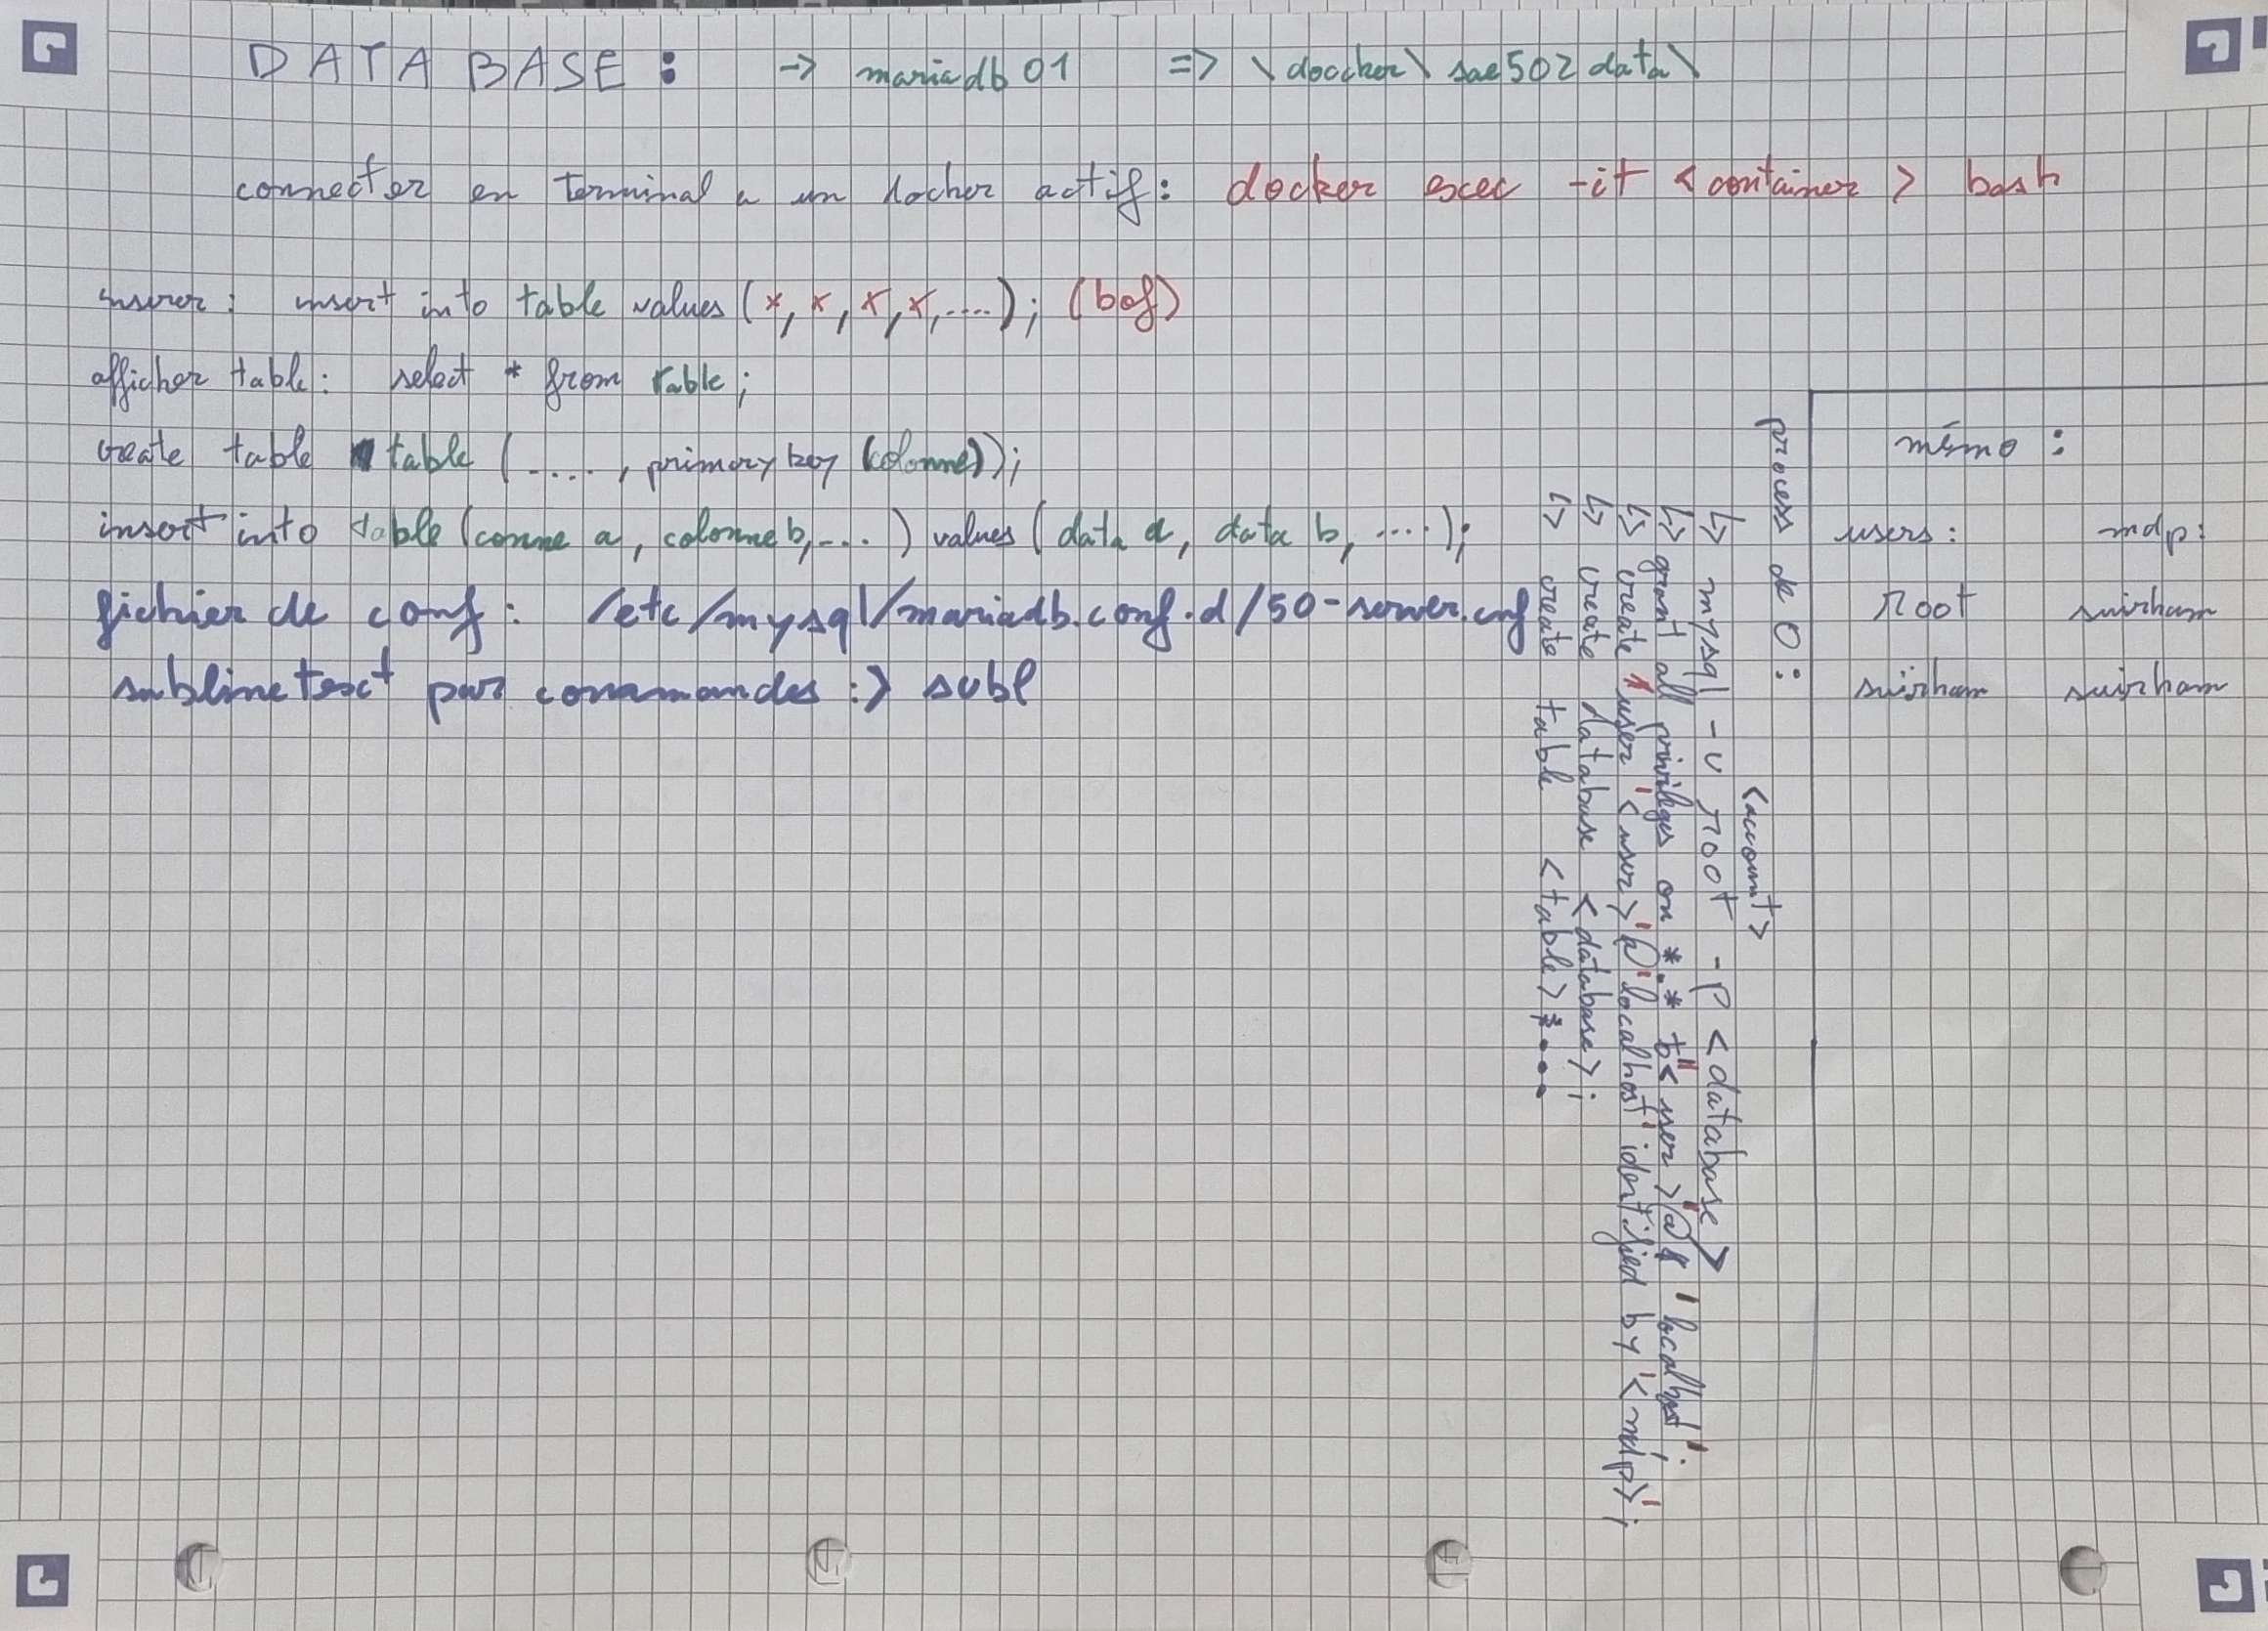 DATABASE : -> mariadb01 => \doocker\sae502data\
connecter en terminal a un docher actif : docker exec -it <container> bash
inserer : insert into table values (*, *, *, *, ....); (bof)
afficher table : select * from table;
create table table (...., primary key (colonne));
insert into table (conne a, colonne b, ...) values (data a, data b, ....);
fichier de conf : /etc/mysql/mariadb.conf.d/50-server.cnf
sublime text par commandes :> subl
mémo :
users : mdp :
root suirham
suirham suirham
process de 0 :
<account>
↳> mysql -u root -p <database>
↳> grant all privileges on *.* to '<user>'@'localhost';
↳> create user '<user>'@'localhost' identified by '<mdp>';
↳> create database <database>;
↳> create table <table> ...